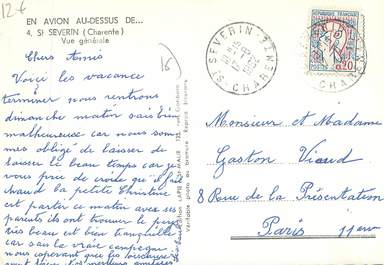 12€
EN AVION AU-DESSUS DE...
4. St SEVERIN (Charente)
Vue générale
Chers Amis
Voici les vacance
terminer nous rentrons
dimanche matin sais bien
malheureuse car nous som
mes obligé de laisser de
laisser le beau temps car je
vous prie de croire qu'il fait
chaud la petite Christine
est partie ce matin avec ses
parents ils ont trouver le pays
très beau est bien tranquille
car sais la vraie campagne
nous
ST SEVERIN
CHARENTE
0,20
Monsieur et Madame
Gaston Viaud
8 Rue de la Présentation
Paris 11em
Véritable photo au bromure